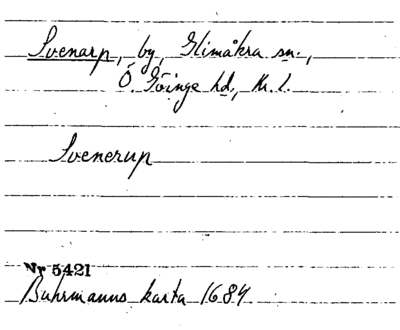 Svenarp, by, Glimåkra sn.,
Ö. Göinge hd., Kr. l.
Svenerup
Nr 5421
Buhrmanns karta 1684.